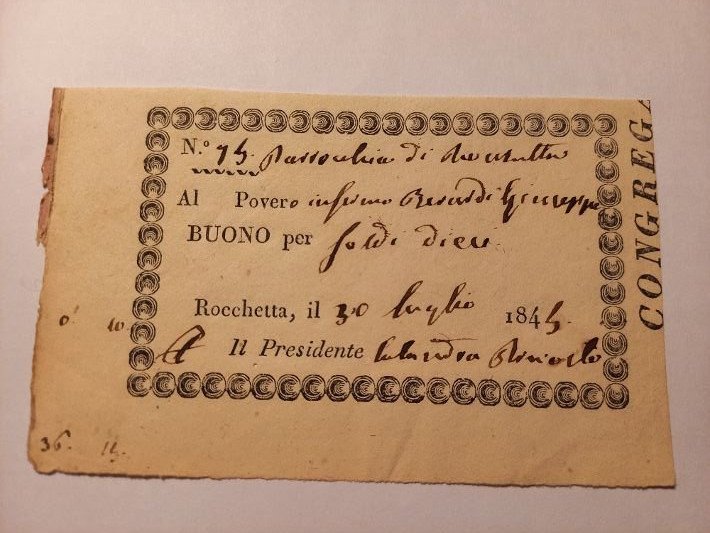 N.º 75. Parrocchia di Rocchetta
Al Povero infermo Berardi Giuseppe
BUONO per soldi dieci
Rocchetta, il 30 luglio 1845.
Il Presidente
CONGREGA
0. 10.
36. 15.